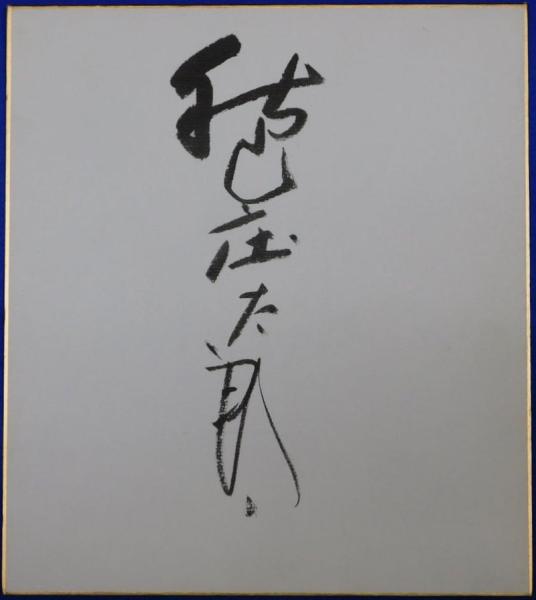 秋山庄太郎